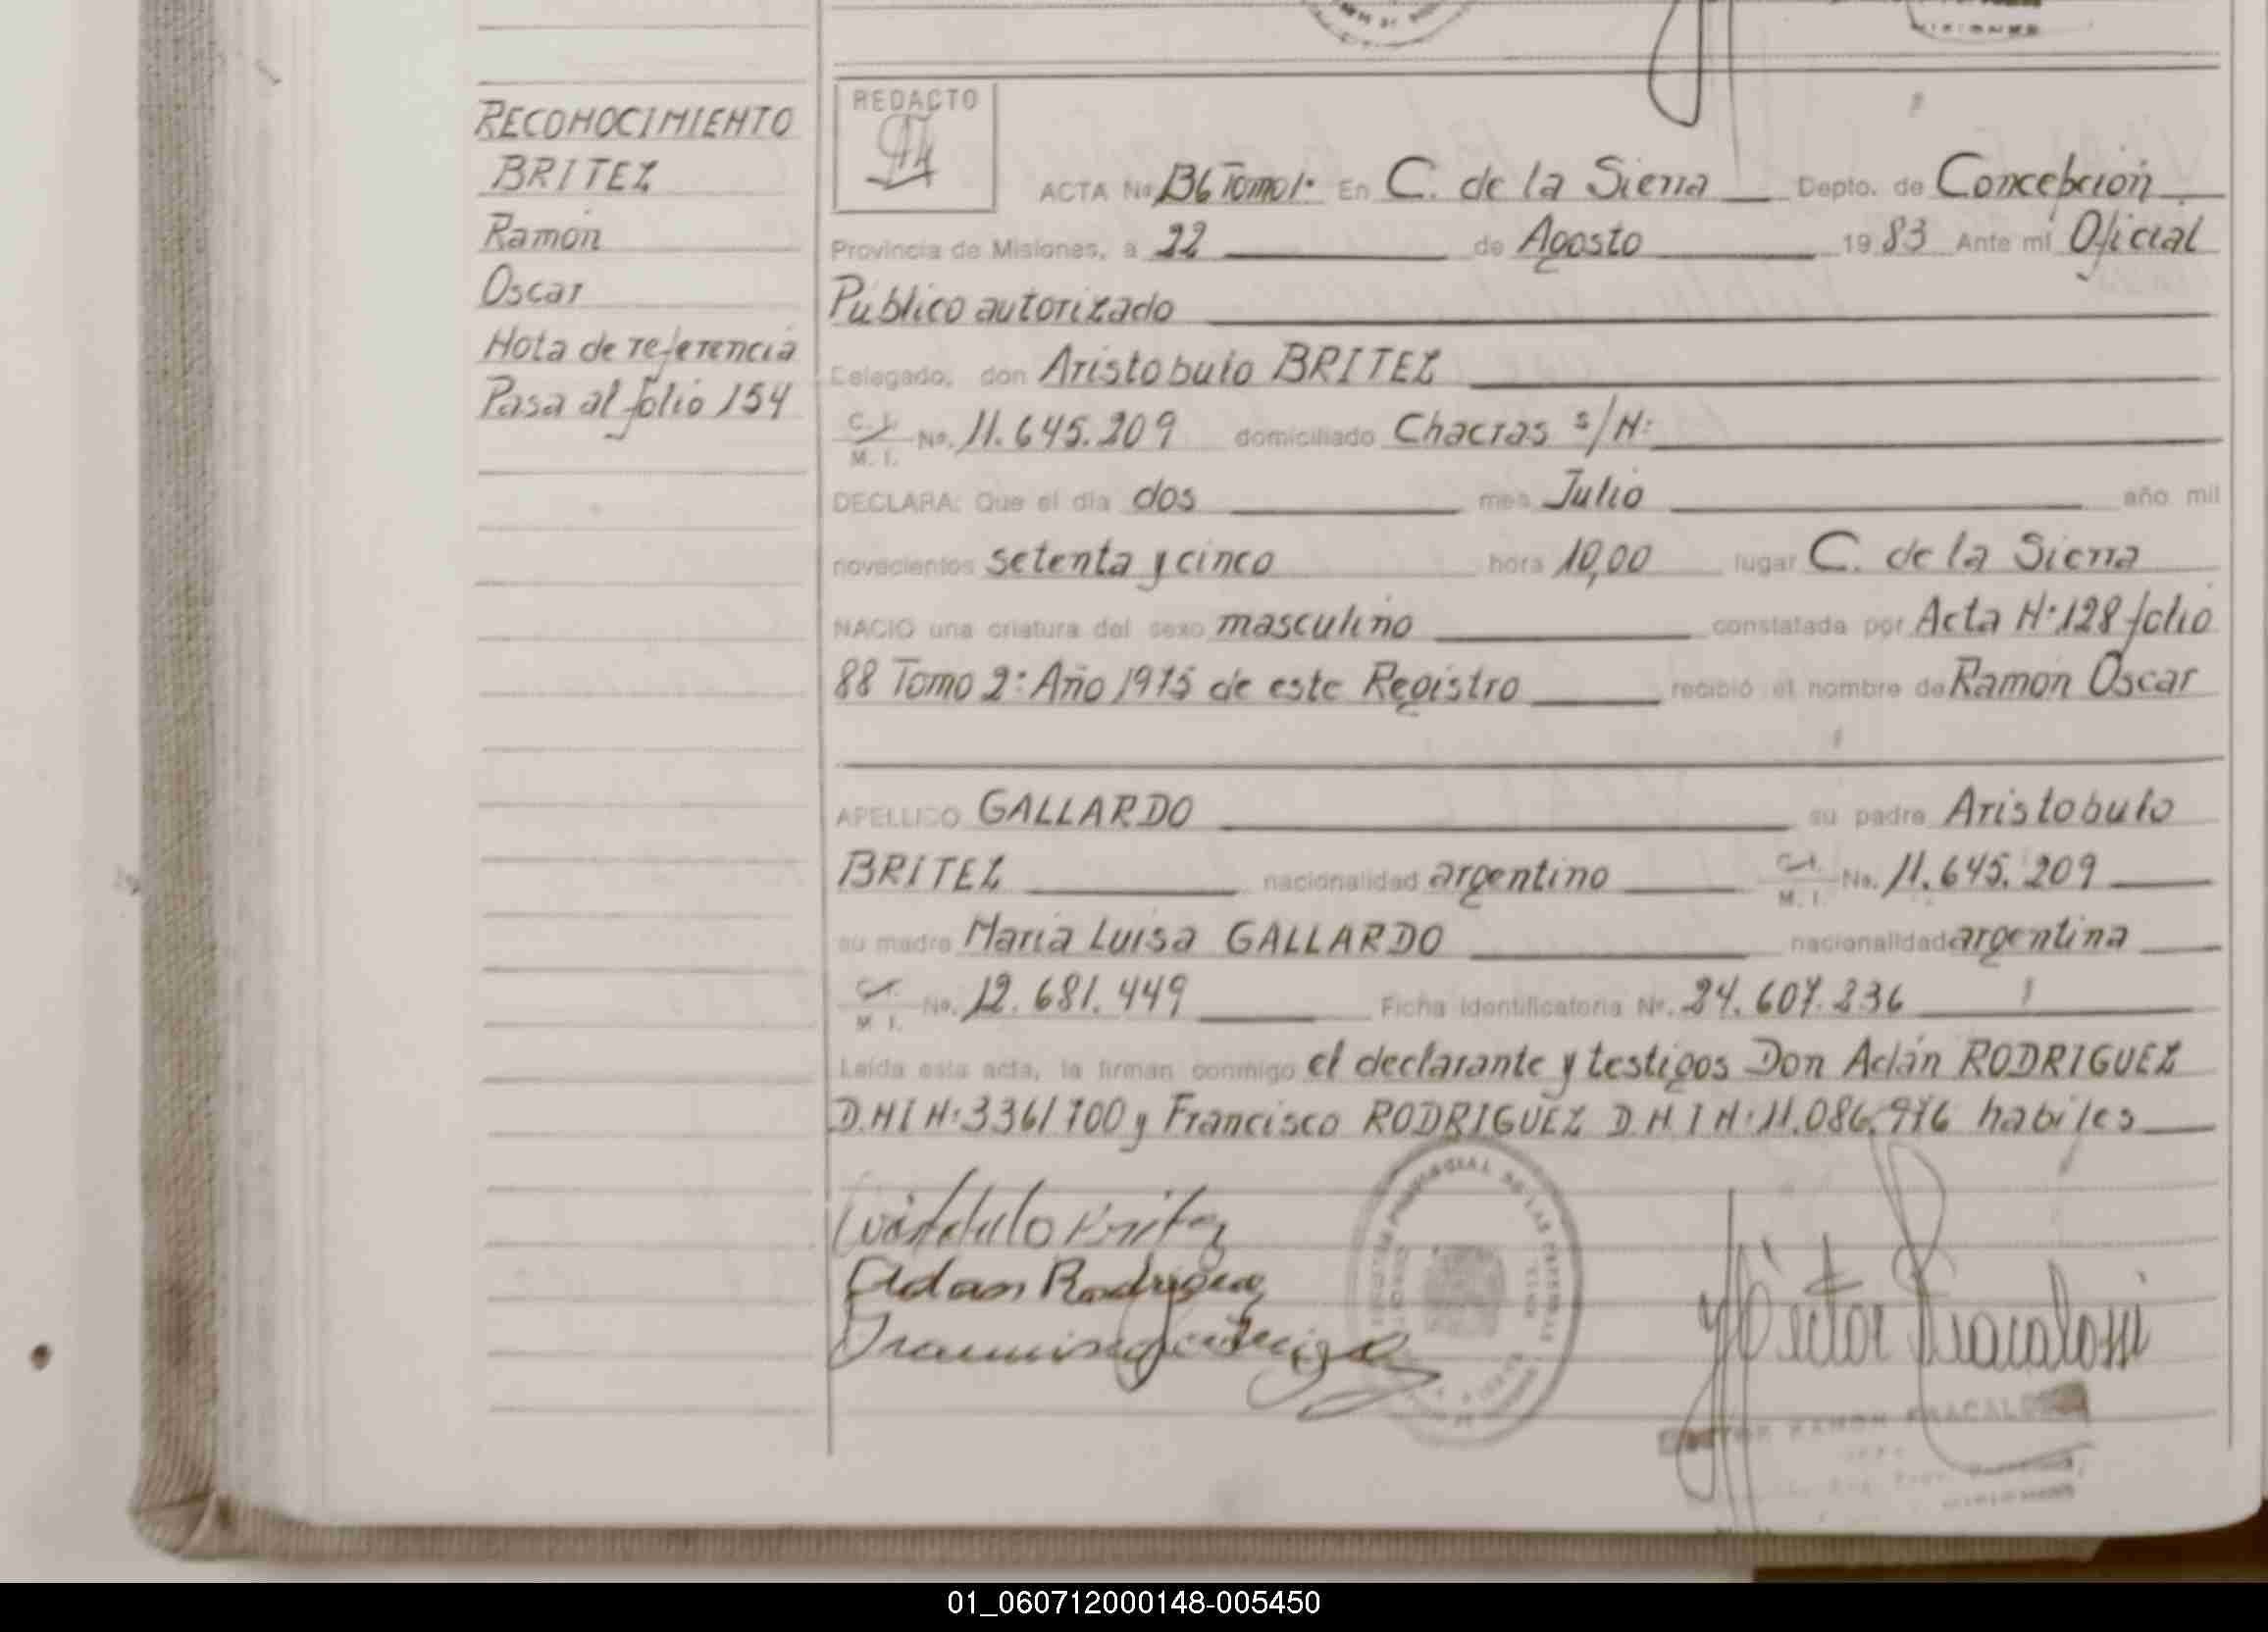 RECONOCIMIENTO
BRITEZ
Ramón
Oscar
Nota de referencia
Pasa al folio 154
REDACTO
ACTA No 136 Tomo 1º En C. de la Sierra Depto. de Concepción
Provincia de Misiones, a 22 de Agosto 1983 Ante mí Oficial
Público autorizado
Delegado, don Aristobulo BRITEZ
C. I.
M. I. No. 11.645.209 domiciliado Chacras s/N:
DECLARA: Que el día dos mes Julio año mil
novecientos setenta y cinco hora 10,00 lugar C. de la Sierra
NACIO una criatura del sexo masculino constatada por Acta Nº 128 folio
88 Tomo 2º Año 1975 de este Registro recibió el nombre de Ramón Oscar
APELLIDO GALLARDO su padre Aristobulo
BRITEZ nacionalidad argentino C.I.
M. I. No. 11.645.209
su madre María Luisa GALLARDO nacionalidad argentina
C.I.
M. I. No. 12.681.449 Ficha Identificatoria Nº. 24.607.236
Leída esta acta, la firman conmigo el declarante y testigos Don Adán RODRIGUEZ
D.N.I N: 3361700 y Francisco RODRIGUEZ D.N.I N: 11.086.976 habiles
Britez
Adan Rodriguez
Hector Fracalossi
RAMON FRACALOSSI
MISIONES
01_060712000148-005450